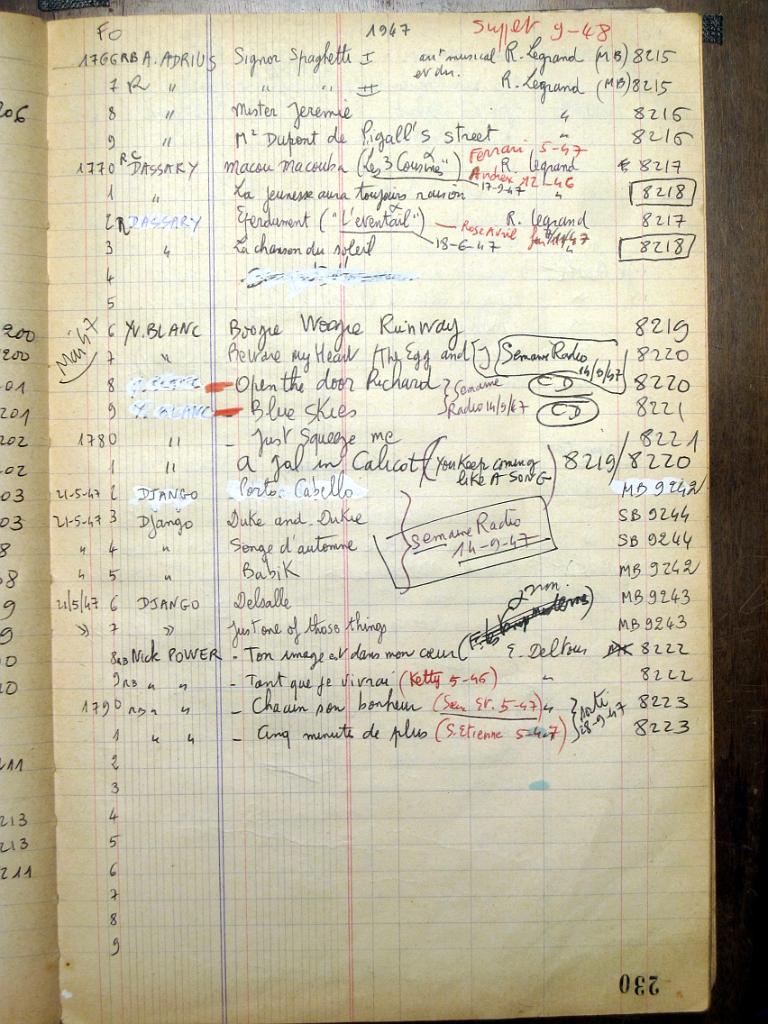 FO 1947 Super 9-48
1766 RB A. ADRIUS Signor Spaghetti I R. Legrand (MB) 8215
7 R " " " II R. Legrand (MB) 8215
8 " Mister Jeremie " 8216
9 " Mr Dupont de Pigall's street " 8216
1770 RC DASSARY Macou Macouba (Les 3 Cousines) Ferrari 5-47 R. Legrand 8217
Andrex 12-46
1 " La jeunesse aura toujours raison 17-9-47 " 8218
2 R DASSARY Eperdument ("L'eventail") Rose Avril R. Legrand 8217
3 " La chanson du soleil 18-6-47 " 8218
4
5
Mai 47
6 YV. BLANC Boogie Woogie Runway 8219
7 " Beware my Heart (The Egg and I) Semaine Radio 14/9/47 8220
8 Y. BLANC - Open the door Richard Semaine CD 8220
9 Y. BLANC - Blue Skies Radio 14/9/47 CD 8221
1780 " - Just Squeeze me 8221
1 " A gal in Calicot (You Keep coming like A SONG) 8219/8220
21-5-47 2 DJANGO Porto Cabello MB 9242
21-5-47 3 Django Duke and Dukie SB 9244
" 4 " Songe d'automne Semaine Radio 14-9-47 SB 9244
" 5 " Babik MB 9242
21/5/47 6 DJANGO Delsalle MB 9243
" 7 " Just one of those things MB 9243
8 RB Nick POWER - Ton image est dans mon cœur E. Delfous 8222
9 RB " " - Tant que je vivrai (Ketty 5-46) " 8222
1790 RB " " - Chacun son bonheur (Sen. Ev. 5-47) " sorti 28-9-47 8223
1 " " - Cinq minute de plus (S. Etienne 5-4-7) 8223
2
3
4
5
6
7
8
9
230
206
200
200
01
201
202
02
03
03
8
8
9
9
0
20
211
213
213
211